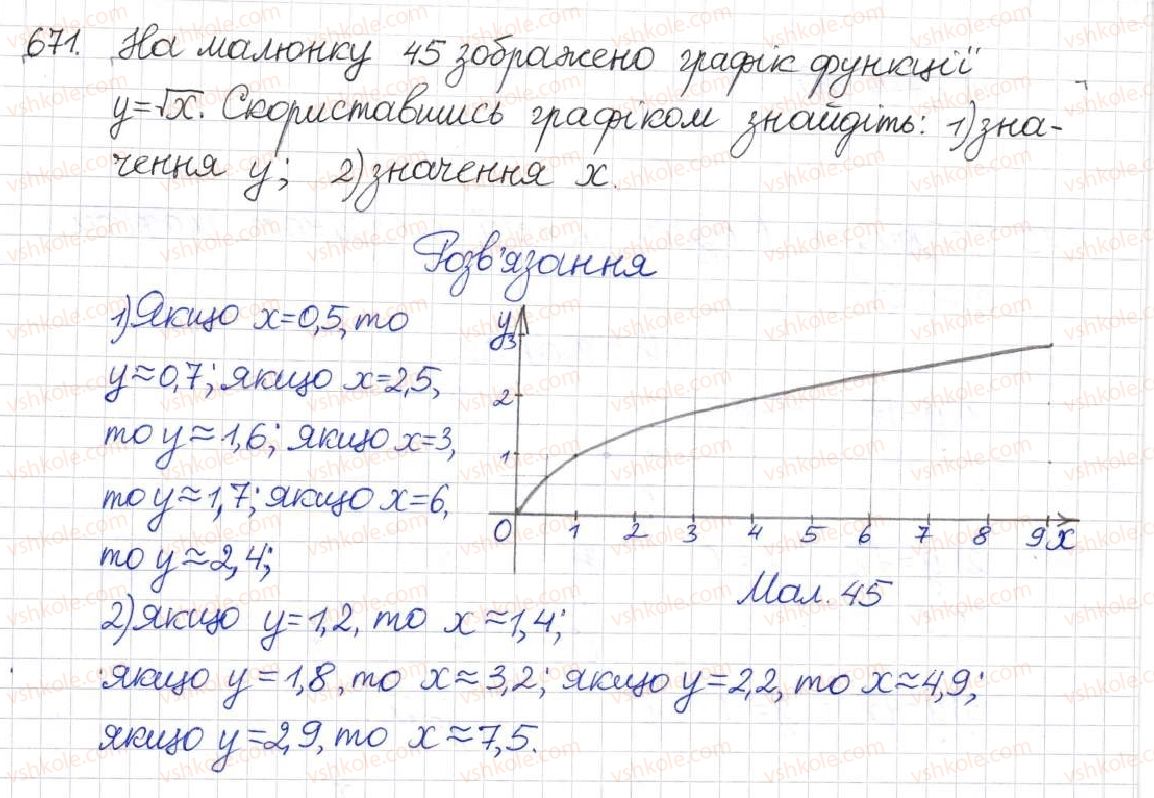 671. На малюнку 45 зображено графік функції
y=√x. Скориставшись графіком знайдіть: 1) зна-
чення y; 2) значення x.
Розв'язання
1) Якщо x=0,5, то
y≈0,7; якщо x=2,5,
то y≈1,6; якщо x=3,
то y≈1,7; якщо x=6,
то y≈2,4;
y
3
2
1
0 1 2 3 4 5 6 7 8 9 x
Мал. 45
2) якщо y=1,2, то x≈1,4;
якщо y=1,8, то x≈3,2; якщо y=2,2, то x≈4,9;
якщо y=2,9, то x≈7,5.
vshkole.com